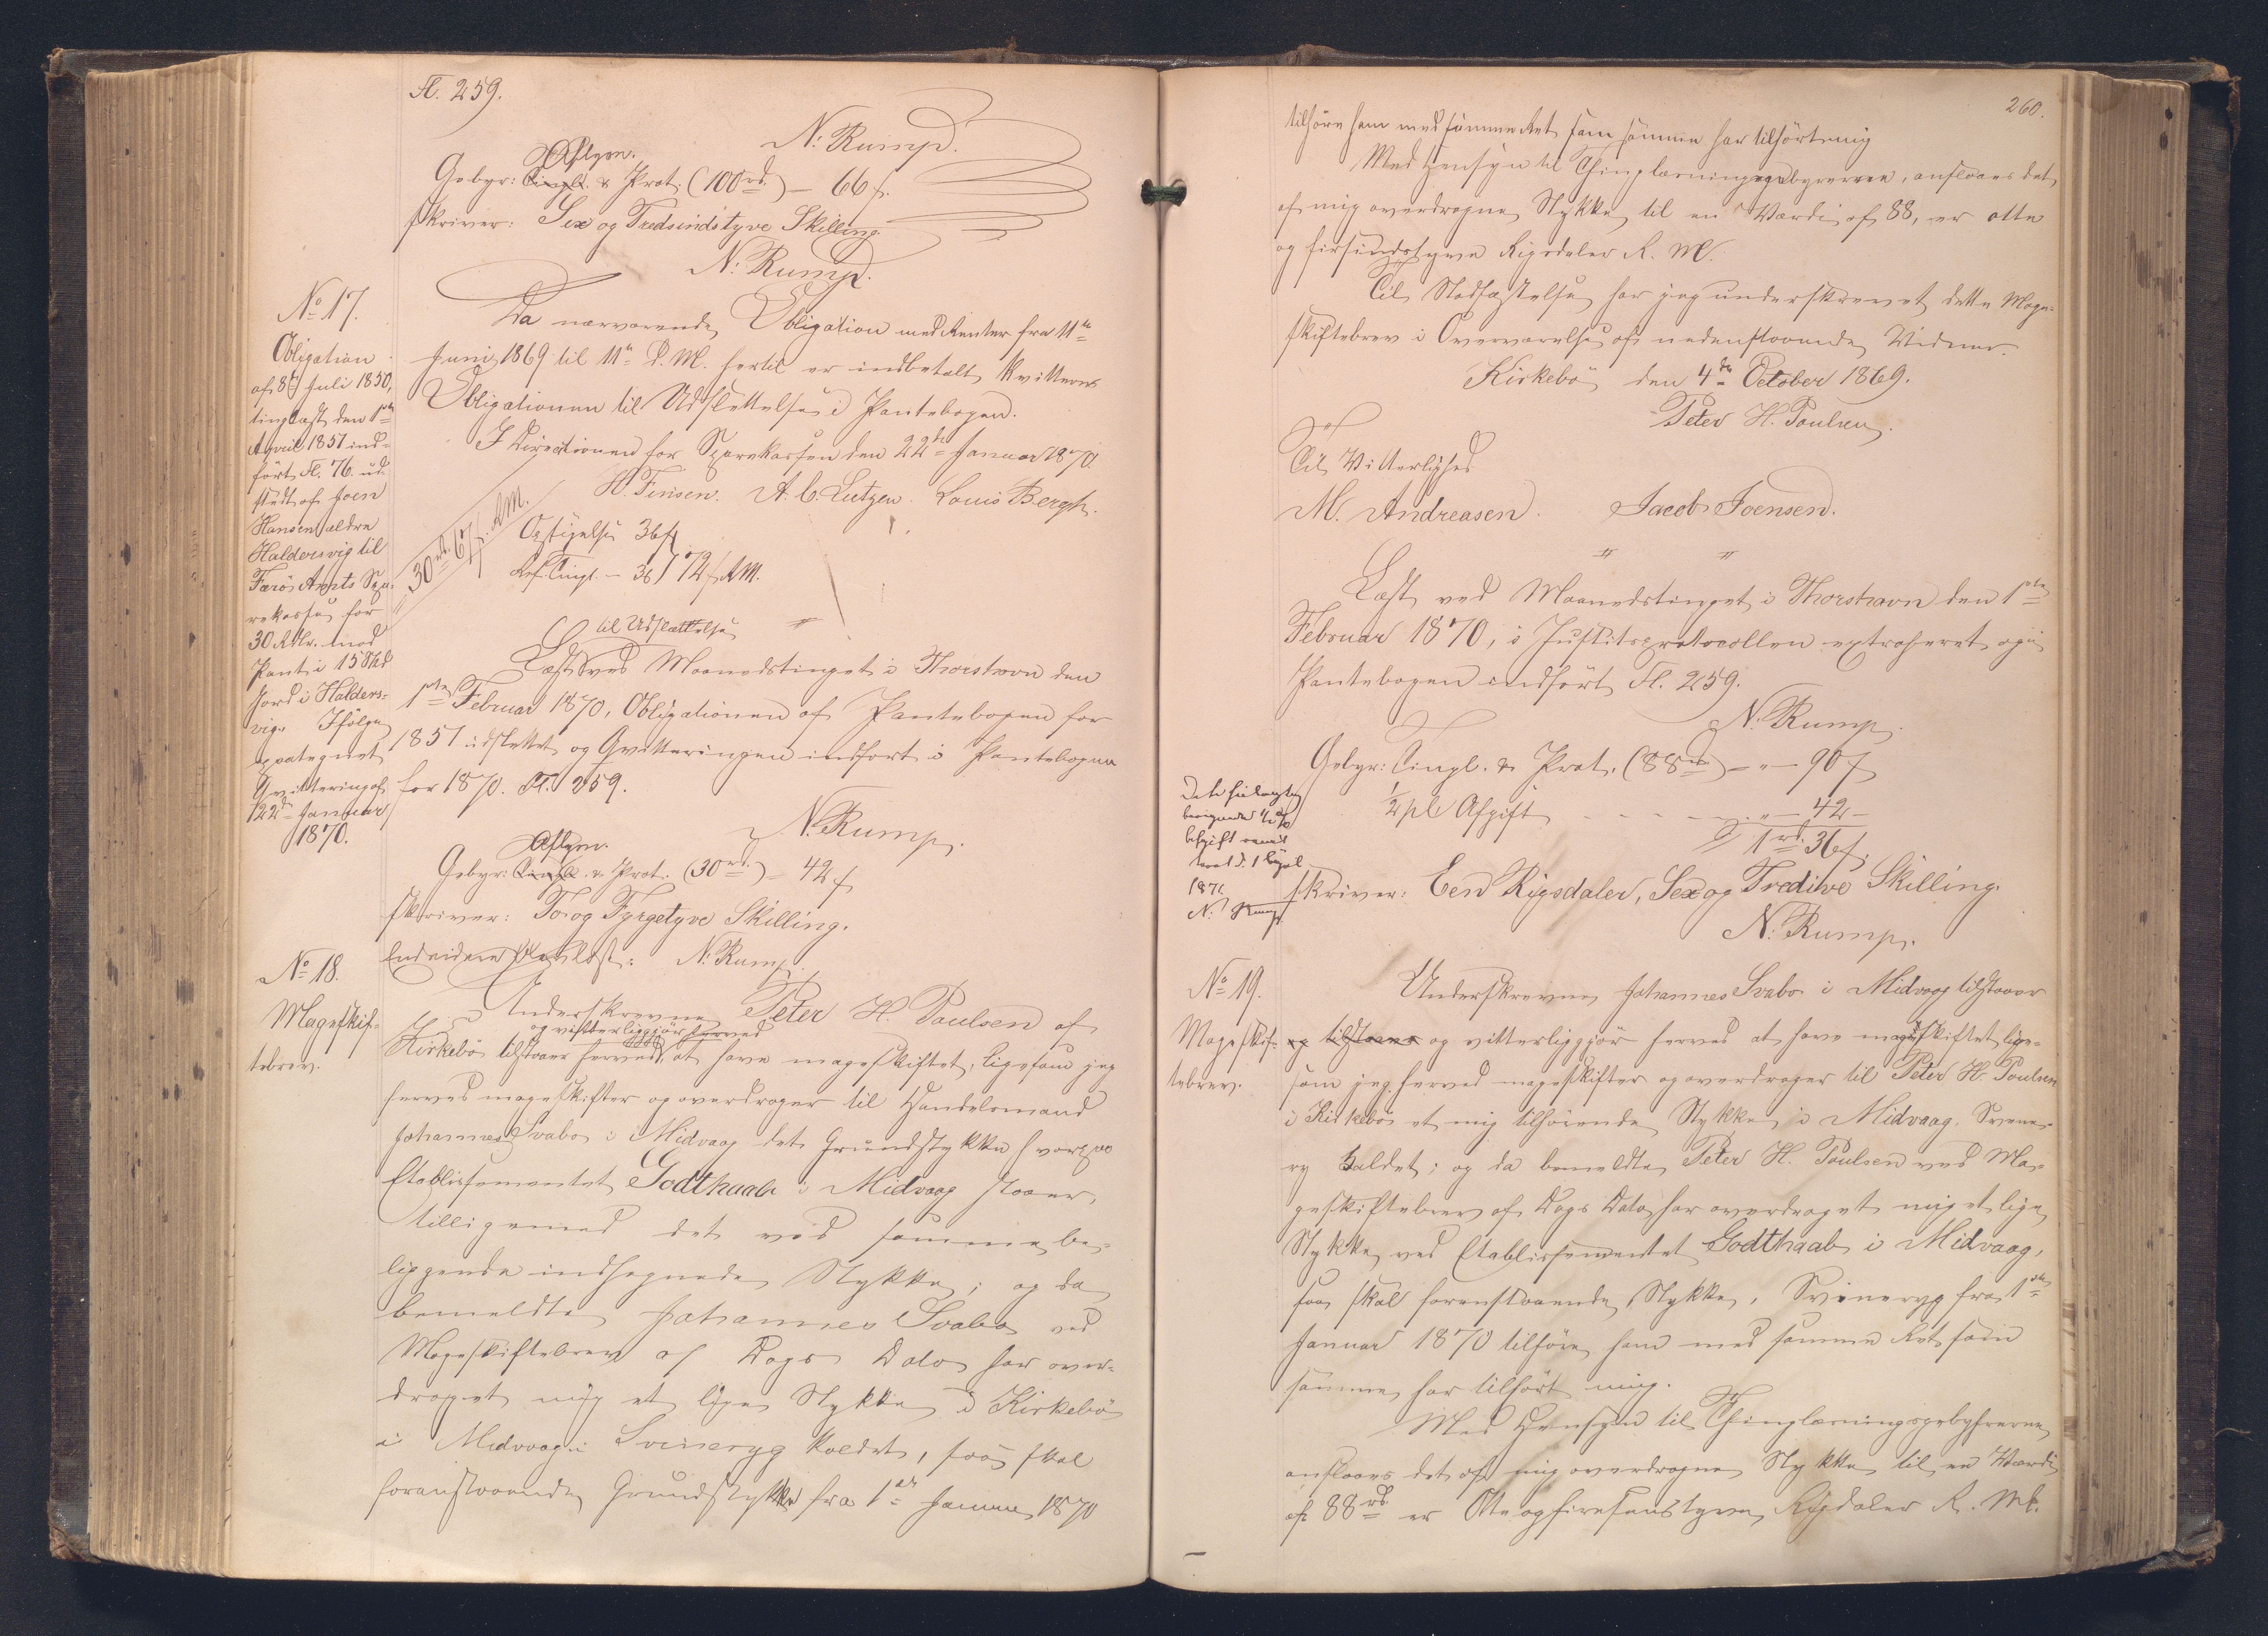 Fl. 259.
N. Rump.
Aflysn.
Gebyr: Tingl. & Prot. (100 rd.) — 66 s.
skriver: Sex og Tredsindstyve Skilling.
N. Rump.
No 17.
Obligation
af 8de Juli 1850,
tinglæst den 1ste
April 1851 ind-
ført Fl. 76. ud-
stedt af Joen
Hansen ældre
Haldersvig til
Færø Amts Spa-
rekasse for
30 Rdlr. mod
Pant i 15 Skd
Jord i Halders-
vig. Ifølge
paategnet
Qvittering af
22de Januar
1870.
Da nærværende Obligation med Renter fra 11te
Juni 1869 til 11te D. M. hertil er indbetalt, kvitteres
Obligationen til Udslettelse i Pantebogen.
I Directionen for Sparekassen den 22de Januar 1870.
H. Finsen. A. C. Lutzen. Louis Bergh.
30 rd. 67 s. RM.
36 s
Tingl. — 36 / 72 s RM.
til Udslættelse
Læst ved Maanedstinget i Thorshavn den
1ste Februar 1870, Obligationen af Pantebogen for
1851 udslettet og Qvitteringen indført i Pantebogen
for 1870. Fl. 259.
N. Rump.
Aflysn.
Gebyr: Tingl. & Prot. (30 rd.) — 42 s
skriver: To og Fyrgetyve Skilling.
N. Rump.
No 18.
Mageskif-
tebrev.
Underskrevne Peter H. Poulsen af
og vitterliggjør herved
Kirkebø tilstaaer herved at have mageskiftet, ligesom jeg
herved mageskifter og overdrager til Handelsmand
Johannes Svabo i Midvaag det Grundstykke hvorpaa
Etablissementet Godthaab i Midvaag staaer,
tilligemed det ved samme be-
liggende indhegnede Stykke; og da
bemeldte Johannes Svabo ved
Mageskiftebrev af Dags Dato har over-
draget mig et lige Stykke i Kirkebø
i Midvaag: Svineryg kaldet, saa skal
foranstaaende Grundstykke fra 1ste Januar 1870
260.
tilhøre ham med samme Ret som samme har tilhørt mig
Med Hensyn til Thinglæsningsgebyrerne, anslaaes det
af mig overdragne Stykke til en Værdi af 88, er otte
og firsindstyve Rigsdaler R. M.
Til Stadfæstelse har jeg underskrevet dette Mage-
skiftebrev i Overværelse af nedenstaaende Vidner.
Kirkebø den 4de October 1869.
Peter H. Poulsen.
Til Vitterlighed
M. Andreasen. Jacob Joensen.
Læst ved Maanedstinget i Thorshavn den 1ste
Februar 1870, i Justitsprotocollen extraheret og i
Pantebogen indført Fl. 259.
N. Rump.
Gebyr: Tingl. & Prot. (88 rd.) — " — 90 s
1/2 pCt Afgift — " — 42 —
1 rd. 36 s.
skriver: Een Rigsdaler, Sex og Tredive Skilling.
N. Rump.
1/2 %
Afgift
1871
N. Rump
No 19.
Mageskif-
tebrev.
Underskrevne Johannes Svabo i Midvaag tilstaaer
og tilstaaer og vitterliggjør herved at have mageskiftet lige-
som jeg herved mageskifter og overdrager til Peter H. Poulsen
i Kirkebø et mig tilhørende Stykke i Midvaag, Svine-
ryg kaldet; og da bemeldte Peter H. Poulsen ved Ma-
geskiftebrev af Dags Dato har overdraget mig et lige
Stykke ved Etablissementet Godthaab i Midvaag,
saa skal foranstaaende Stykke, Svineryg fra 1ste
Januar 1870 tilhøre ham med samme Ret som
samme har tilhørt mig.
Med Hensyn til Thinglæsningsgebyrerne
anslaaes det af mig overdragne Stykke til en Værdi
af 88 rd. er Otte og firesindstyve Rigsdaler R. Mt.